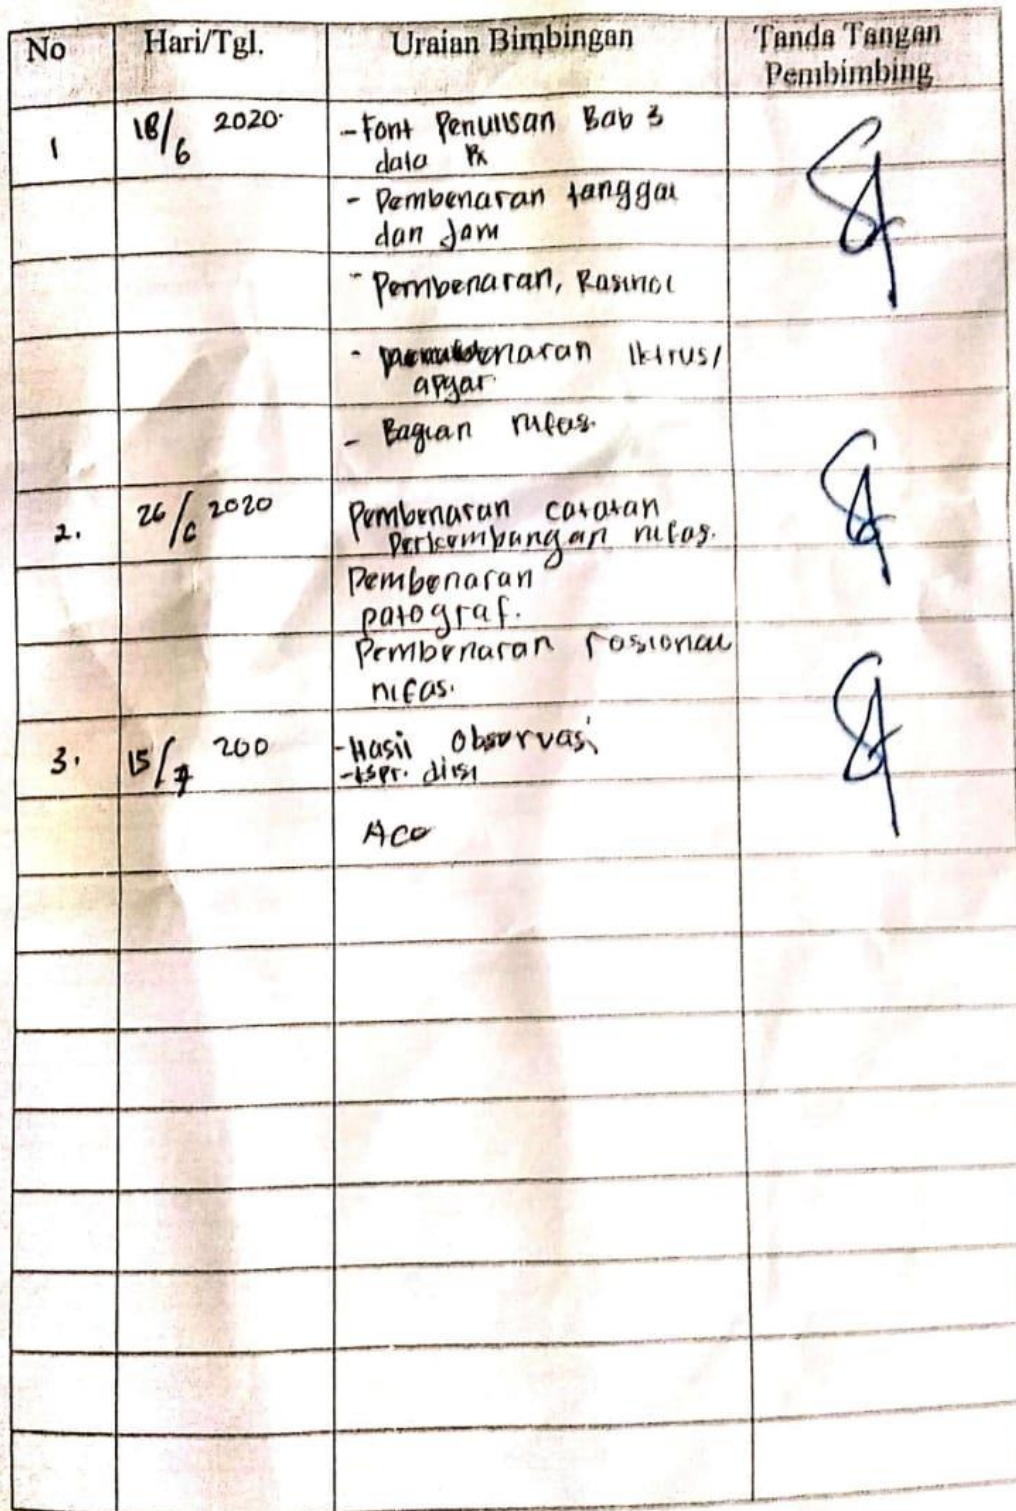 No Hari/Tgl. Uraian Bimbingan Tanda Tangan
Pembimbing
1 18/6 2020 - Font Penulisan Bab 3
data Px
- Pembenaran tanggal
dan Jam
- Pembenaran, Rasinol
- Iktrus/
apgar
- Bagian nifas.
2. 26/6 2020 Pembenaran catatan
Perkembangan nifas.
Pembenaran
patograf.
Pembenaran rasional
nifas.
3. 15/7 200 - Hasil Observasi
Acc